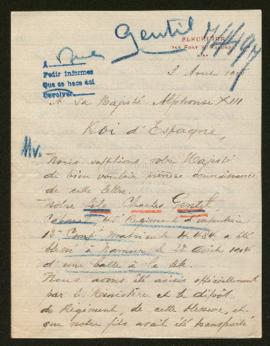 Gentil
FLEURINES
A
Pedir informes
Que se hace así
Devolver.
A Sa Majesté Alphonse XIII
Roi d'Espagne,
Nous supplions votre Majesté
de bien vouloir prendre connaissance
de cette lettre.
Notre fils Charles Gentil
Régiment d'infanterie
blessé à le 22 Août 1914
d'une balle à la tête.
Nous avons été avisés officiellement
par le Ministère et le dépôt
du Régiment, de cette blessure, et
que notre fils avait été transporté